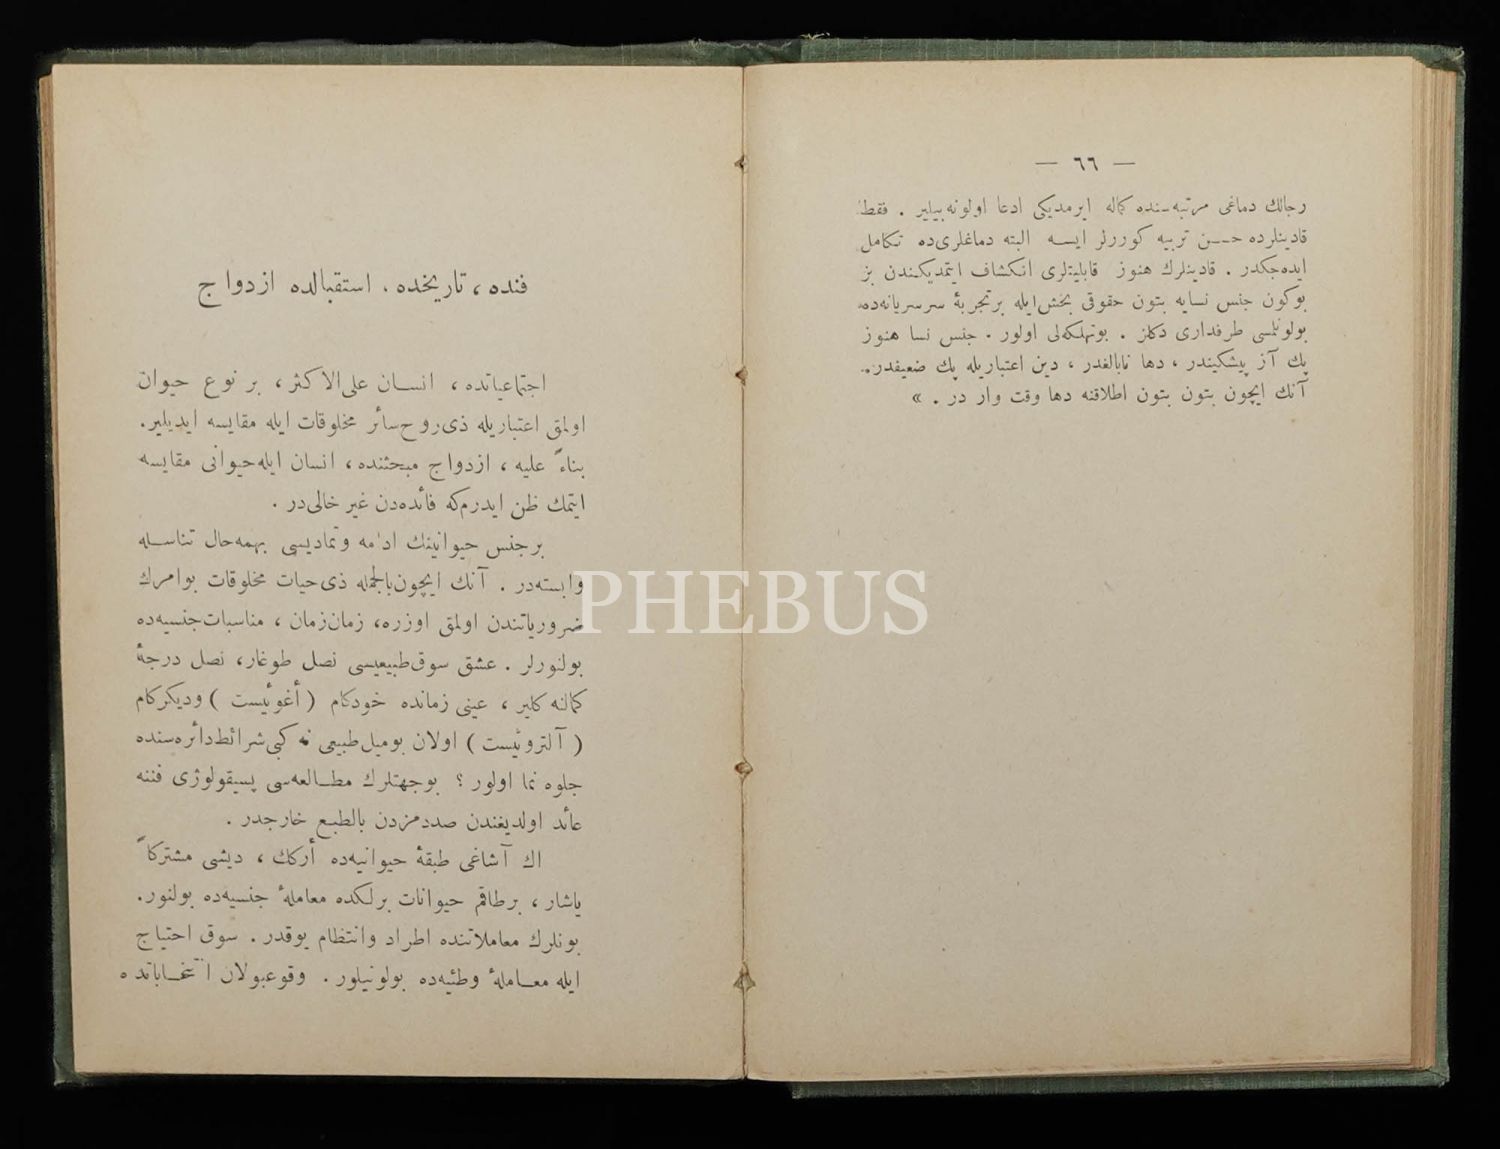 — ٦٦ —
رجالك دماغی مرتبه‌سنده كماله ایرمدیكی ادعا اولونه‌بیلیر . فقط
قادینلرده حسن تربیه كوررلر ایسه البته دماغلری‌ده تكامل
ایده‌جكدر . قادینلرك هنوز قابلیتلری انكشاف ایتمدیكندن بز
بوكون جنس نسایه بتون حقوقی بخش‌ایله برتجربهٔ سرسریانه‌ده
بولونلمسی طرفداری دكلز . بوتهلكه‌لی اولور . جنس نسا هنوز
پك آز پیشكیندر ، دها نابالغدر ، دین اعتباریله پك ضعیفدر..
آنك ایچون بتون بتون اطلاقنه دها وقت وار در . »
فنده ، تاریخده ، استقبالده ازدواج
اجتماعیاتده ، انسان علی‌الاكثر ، بر نوع حیوان
اولمق اعتباریله ذی‌روح‌سائر مخلوقات ایله مقایسه ایدیلیر.
بناءً علیه ، ازدواج مبحثنده ، انسان ایله‌حیوانی مقایسه
ایتمك ظن ایدرم‌كه فائده‌دن غیر خالی‌در .
برجنس حیوانینك ادامه وتمادیسی بهمه‌حال تناسله
وابسته‌در . آنك ایچون‌بالجمله ذی‌حیات مخلوقات بوامرك
ضروریاتندن اولمق اوزره، زمان‌زمان ، مناسبات‌جنسیه‌ده
بولنورلر . عشق سوق‌طبیعیسی نصل طوغار، نصل درجهٔ
كمالنه كلیر ، عینی زمانده خودكام ( أغوئیست ) ودیكركام
( آلتروئیست ) اولان بومیل‌طبیعی نه كبی‌شرائط‌دائره‌سنده
جلوه نما اولور ؟ بوجهتلرك مطالعه‌سی پسیقولوژی فننه
عائد اولدیغندن صددمزدن بالطبع خارجدر .
اك آشاغی طبقهٔ حیوانیه‌ده أركك ، دیشی مشتركاً
یاشار ، برطاقم حیوانات برلكده معاملهٔ جنسیه‌ده بولنور.
بونلرك معاملاتنده اطراد وانتظام یوقدر . سوق احتیاج
ایله معاملهٔ وطئیه‌ده بولونیلور . وقوعبولان انتخاباتده
PHEBUS